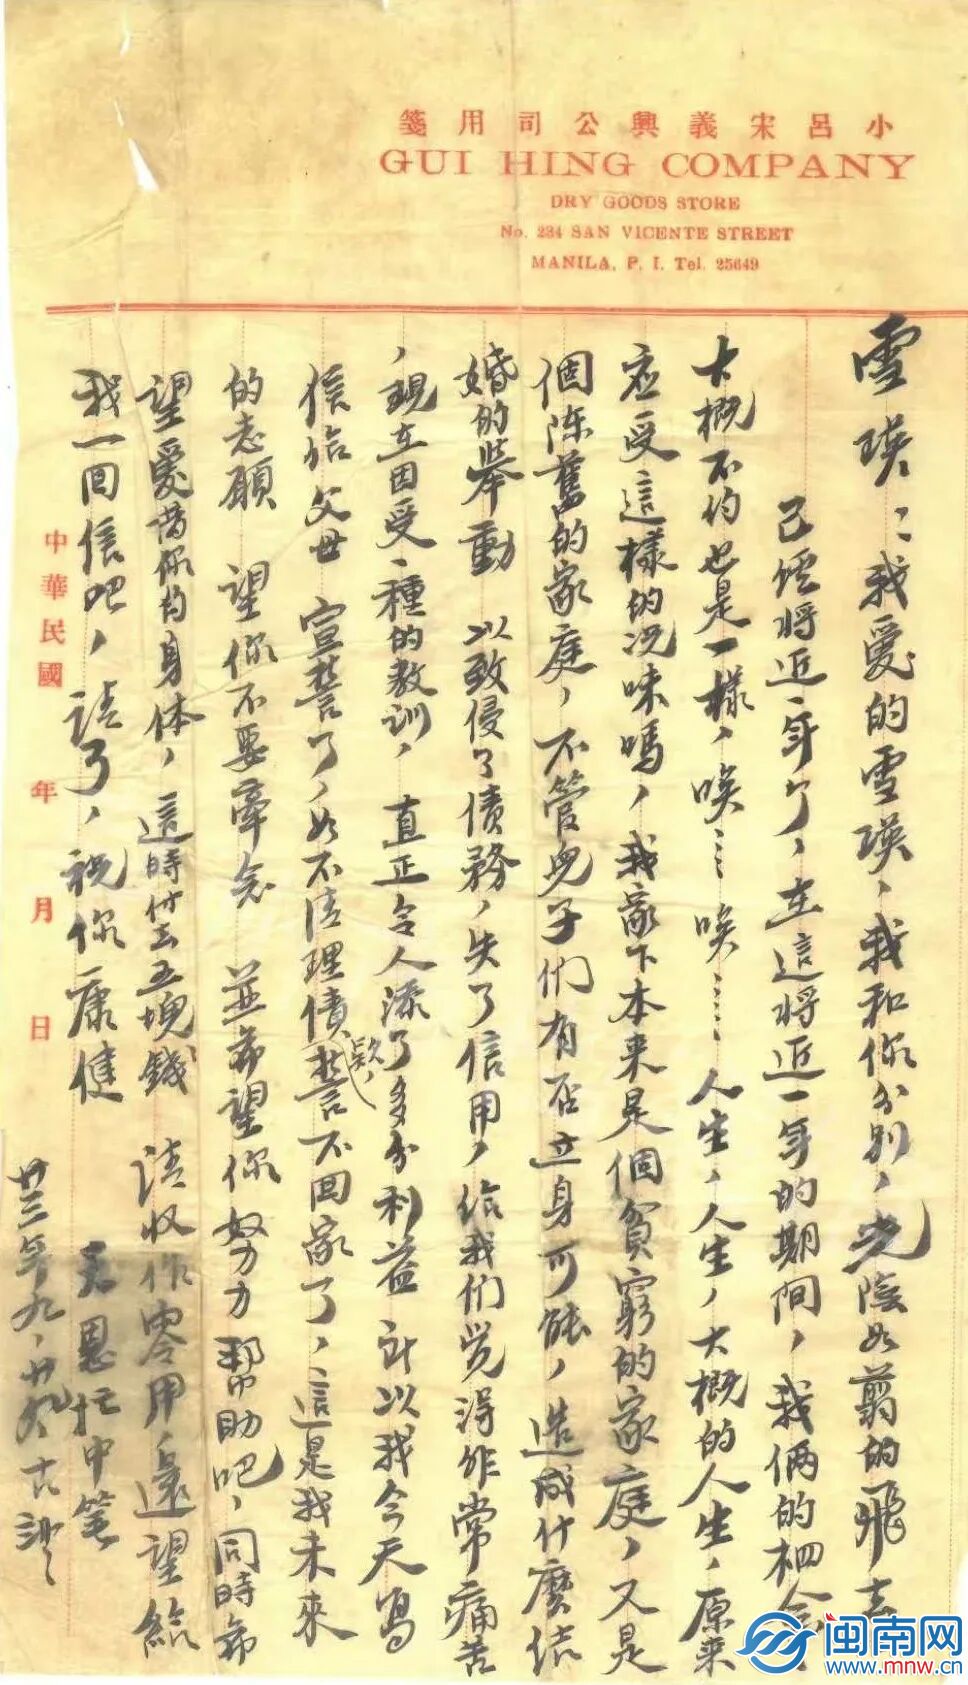 小呂宋義興公司用箋
GUI HING COMPANY
DRY GOODS STORE
No. 234 SAN VICENTE STREET
MANILA, P. I. Tel. 25649
雪瑛：我愛的雪瑛，我和你分別，光陰如翦的飛去
已經將近一年了，在這將近一年的期間，我倆的
大概不約也是一樣，唉……唉……人生，人生，大概的人生，原來
应受這樣的况味嗎，我家下本来是個貧窮的家庭，又是
個陈舊的家庭，不管兒子们有否立身可能，造成什麽结
婚的舉動 以致侵了债務，失了信用，给我们觉得非常痛苦
，現在因受一種的教训，直正令人添了多分利益 计以我今天寫
信给父母 宣誓了，如不清理债款，誓不回家了，這是我未來
的志願 望你不要牽念 並希望你努力幫助吧，同時希
望愛惜你的身体，這時付去五塊錢 請收作零用，還望給
我一回信吧，請了，祝你康健
君恩忙中笔
廿三年九，廿九
中華民國 年 月 日
闽南网
www.mnw.cn